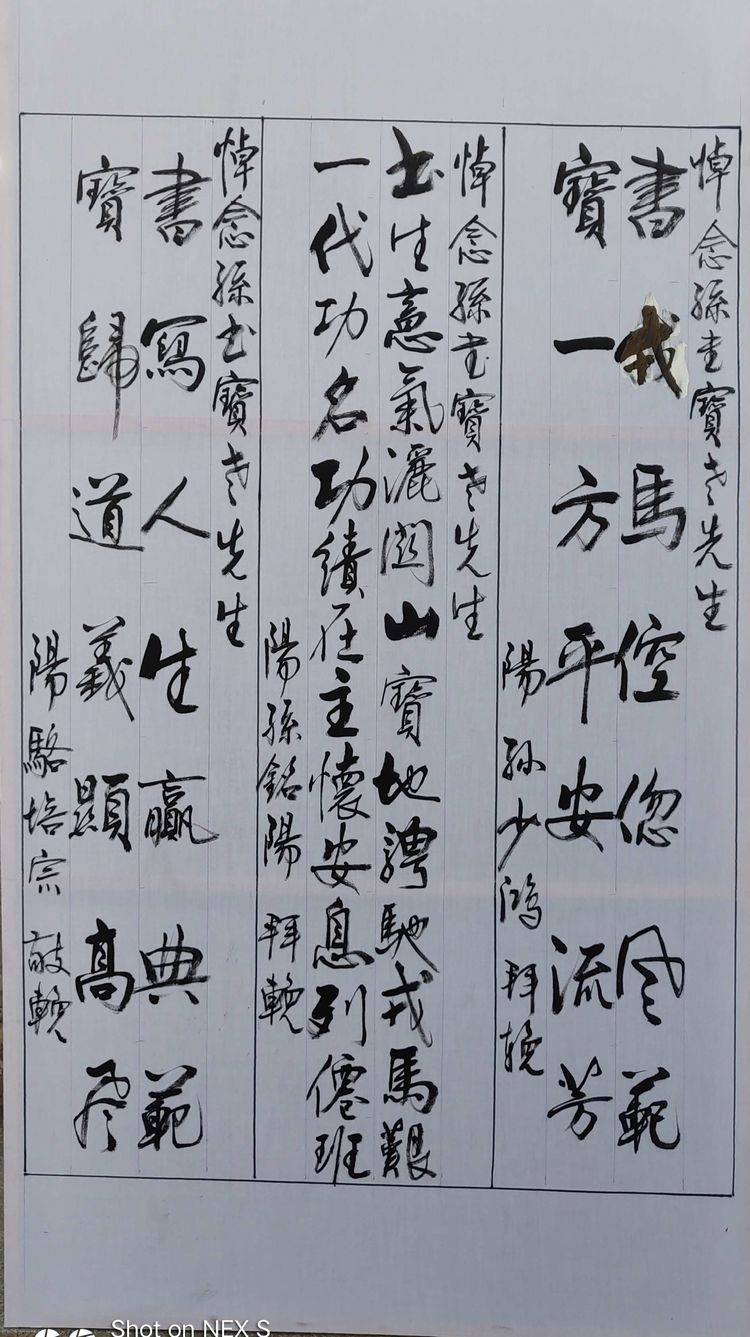 悼念孫書寶老先生
書戎馬倥偬風範
寶一方平安流芳
陽孙少鴻拜挽
悼念孫書寶老先生
书生意氣灑関山寶地騁馳戎馬艱
一代功名功績在主懷安息列僊班
陽孫銘陽拜輓
悼念孫书寶老先生
書寫人生贏典範
寶歸道義顯高風
陽駱培宗敬輓
Shot on NEX S